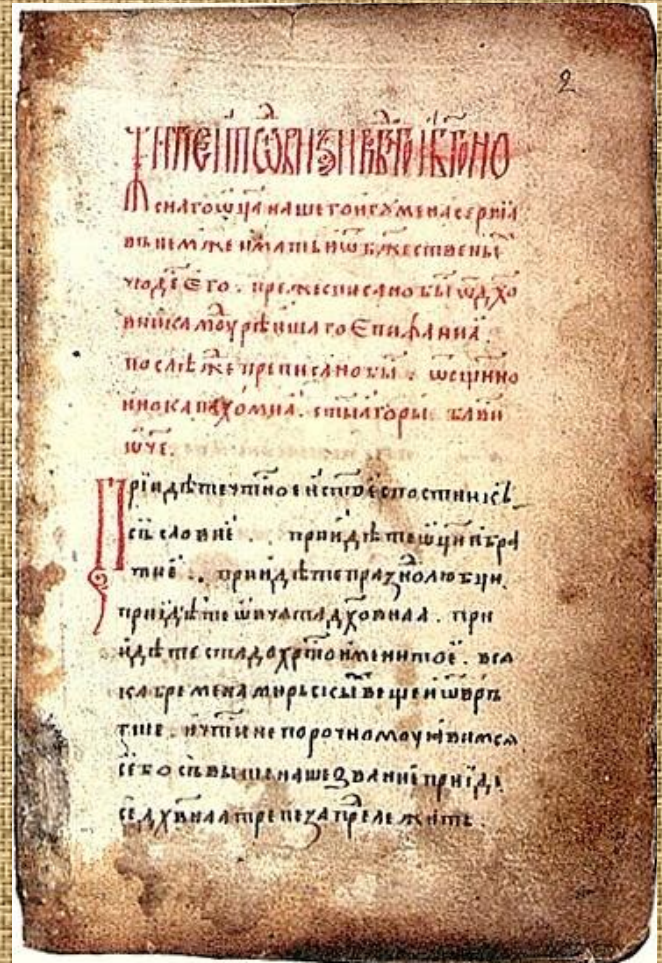 2
житїе и пѡдвиꙁи прпⷣбнаго и бгоно
снаго ѿца нашего игѹмена сергїа
въ немже имать и ѿ бжественыⷯ
чюдеⷭ҇ его . прежесписано быⷭ҇ ѿ дхо
вника моудрѣишаго епифанїа .
послѣже преписано быⷭ҇ . ѿ сщенно
инока пахомїа . стыѧ горы . блви
ѿче .
прїидѣте чтⷭ҇ное и ст҃ое постникѡⷨ
съсловїе . прїидѣте ѿци и бра
тїе . прїидѣте праꙁнолюбци .
прїидѣте ѡвчѧта дх҃овнаа . прї
идѣте стадо хрⷭ҇тоименитое . всѧ
ка бремена мирьскыⷯ вещеи ѿврь
гше . и чⷭ҇тїи непорочномоу ꙗвимсѧ
се бо съвыше наше ꙁванїе прїиде
се дх҃внаа трепеꙁа прележить .